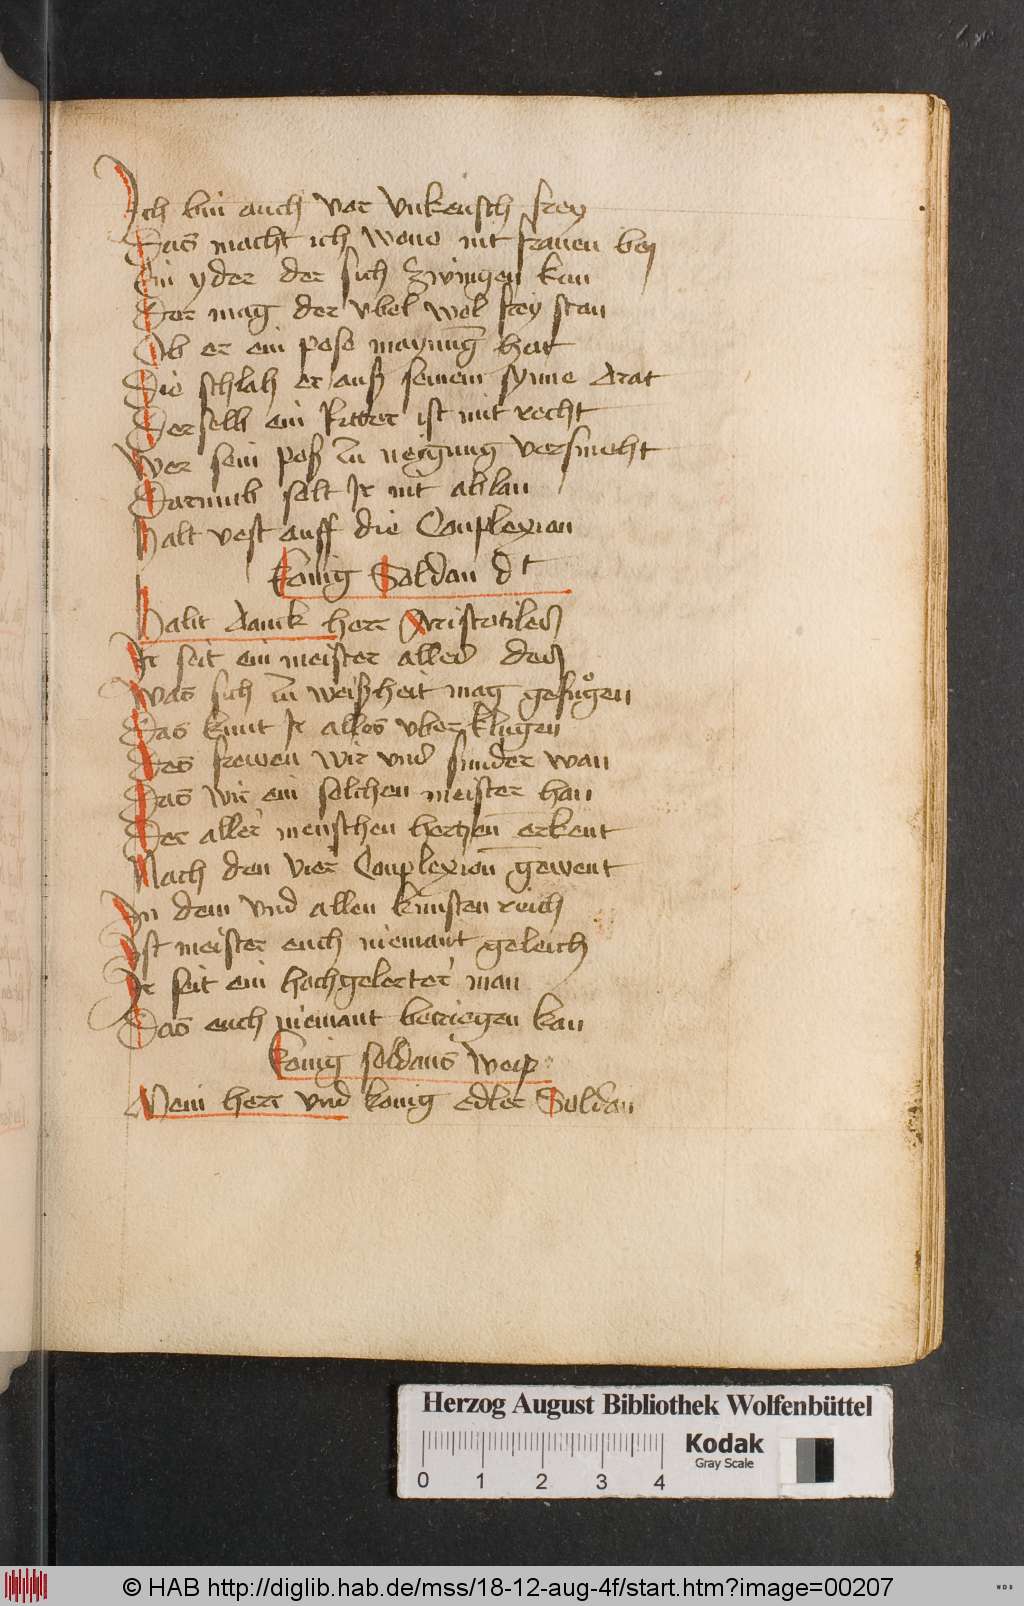 Ich bin auch vor vnkeusch frey
Das macht ich wone nit frauen bey
Ein yder der sich zwingen kan
Der mag der vbel wol frey stan
Ob er ein pose maynung hat
Die schlah er auß seinem synne drat
Derselb ein Ritter ist mit recht
Wer sein poß zu neigung versmeht
Darumb solt Ir nit ablan
Halt vest auff die Conplexion
Konig Soldan dt
Habt danck herr Aristotiles
Ir seit ein meister alles des
Was sich zu weißheit mag gefugen
Das kunt Ir alles vberklugen
Des frewen wir vnd sunder wan
Das wir ein solchen meister han
Der aller menschen hertzen erkent
Nach den vier Conplexion gewent
In dem vnd allen kunsten reich
Ist meister euch niemant geleich
Ir seit ein hochgelerter man
Das euch niemant betriegen kan
Konig soldans weip
Mein herr vnd konig edler Soldan
Herzog August Bibliothek Wolfenbüttel
Kodak
Gray Scale
0 1 2 3 4
© HAB http://diglib.hab.de/mss/18-12-aug-4f/start.htm?image=00207